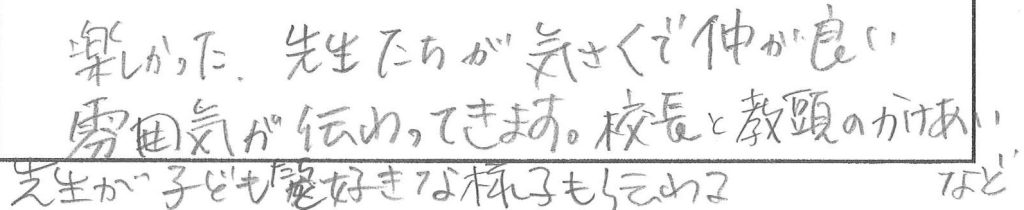 楽しかった. 先生たちが気さくで仲が良い
雰囲気が伝わってきます。校長と教頭のかけあい
など
先生が子ども好きな様子も伝わる